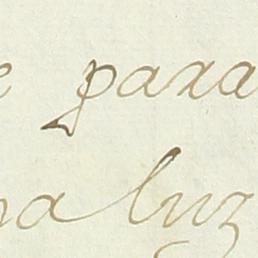 e para
na luz